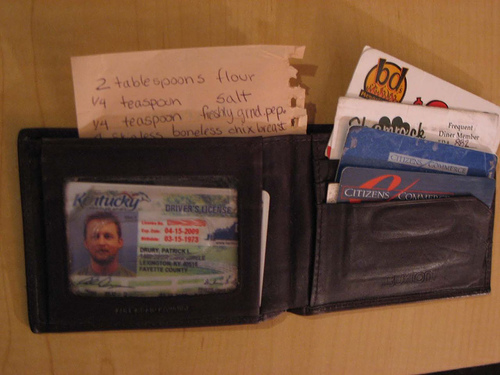 2 tablespoons flour
1/4 teaspoon salt
1/4 teaspoon freshly grnd. pep.
boneless chix breast
bd
Shamrock
Frequent
Diner Member
CITIZENS COMMERCE
CITIZENS COMMERCE
Kentucky
DRIVER'S LICENSE
04-15-2009
03-15-1973
DRURY, PATRICK L
LEXINGTON, KY
FAYETTE COUNTY